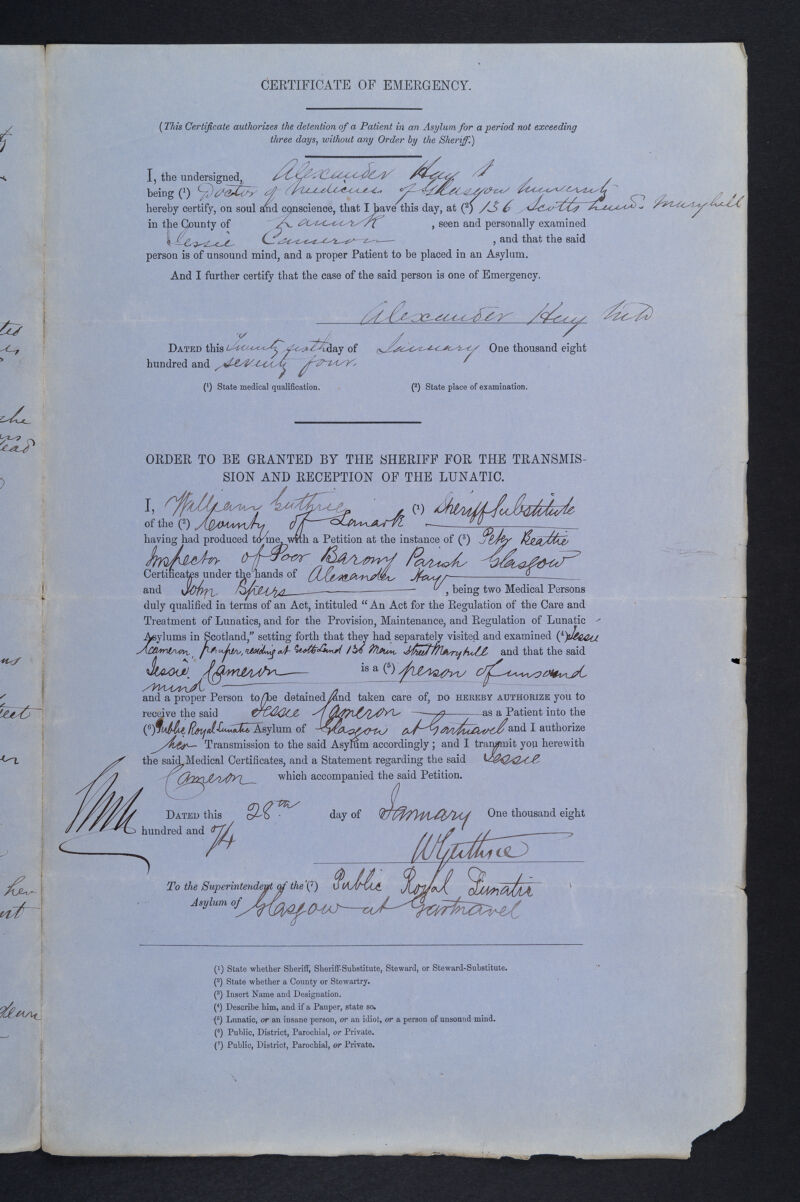 CERTIFICATE OF EMERGENCY.
(This Certificate authorizes the detention of a Patient in an Asylum for a period not exceeding
three days, without any Order by the Sheriff.)
I, the undersigned, Alexander Hay
being (¹) Doctor of Medicine of Glasgow University
hereby certify, on soul and conscience, that I have this day, at (²) 136 Scotts Land Maryhill
in the County of Lanark , seen and personally examined
Jessie Cameron , and that the said
person is of unsound mind, and a proper Patient to be placed in an Asylum.
And I further certify that the case of the said person is one of Emergency.
Alexander Hay MD
DATED this Twenty sixth day of January One thousand eight
hundred and seventy four.
(¹) State medical qualification. (²) State place of examination.
ORDER TO BE GRANTED BY THE SHERIFF FOR THE TRANSMIS-
SION AND RECEPTION OF THE LUNATIC.
I, William Guthrie (¹) Sheriff Substitute
of the (²) County of Lanark
having had produced to me, with a Petition at the instance of (³) Peter Beattie
Inspector of Poor Barony Parish Glasgow
Certificates under the hands of Alexander Hay
and John Speirs , being two Medical Persons
duly qualified in terms of an Act, intituled "An Act for the Regulation of the Care and
Treatment of Lunatics, and for the Provision, Maintenance, and Regulation of Lunatic
Asylums in Scotland," setting forth that they had separately visited and examined (⁴) Jessie
Cameron, pauper, residing at Scotts Land 136 Main Street Maryhill and that the said
Jessie Cameron is a (⁵) person of unsound
mind
and a proper Person to be detained and taken care of, DO HEREBY AUTHORIZE you to
receive the said Jessie Cameron as a Patient into the
(⁶) Public Royal Lunatic Asylum of Glasgow at Gartnavel and I authorize
her Transmission to the said Asylum accordingly; and I transmit you herewith
the said Medical Certificates, and a Statement regarding the said Jessie
Cameron which accompanied the said Petition.
DATED this 28th day of January One thousand eight
hundred and 74
WGuthrie
To the Superintendent of the (⁷) Public Royal Lunatic
Asylum of Glasgow at Gartnavel
(¹) State whether Sheriff, Sheriff-Substitute, Steward, or Steward-Substitute.
(²) State whether a County or Stewartry.
(³) Insert Name and Designation.
(⁴) Describe him, and if a Pauper, state so.
(⁵) Lunatic, or an insane person, or an idiot, or a person of unsound mind.
(⁶) Public, District, Parochial, or Private.
(⁷) Public, District, Parochial, or Private.